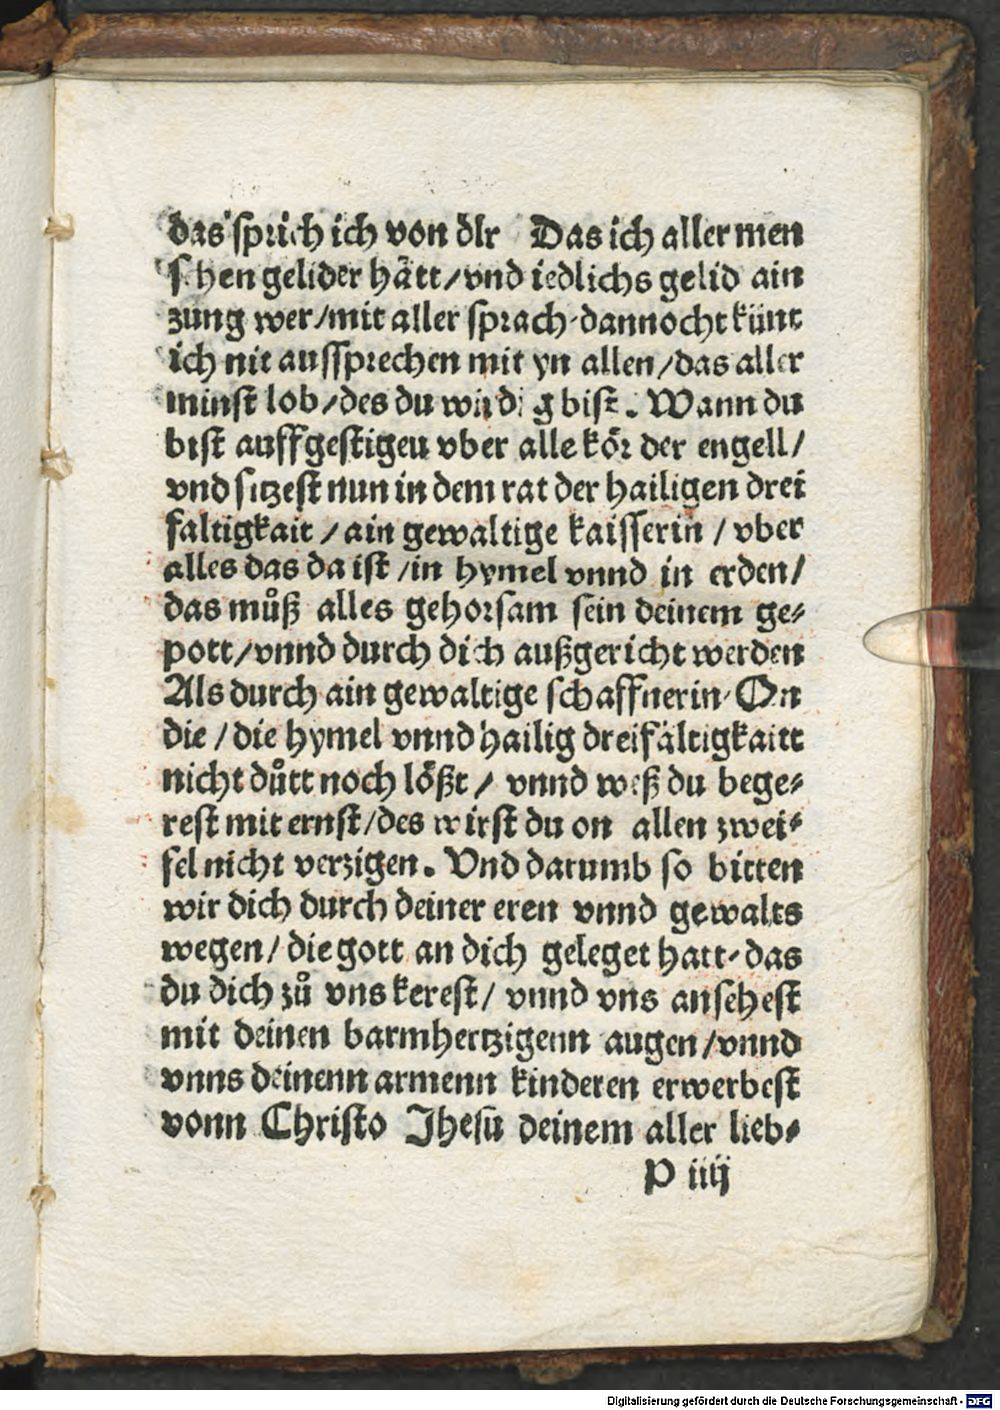 das sprich ich von dir Das ich aller men
schen gelider hått/vnd iedlichs gelid ain
zung wer/mit aller sprach·dannocht künt
ich nit aussprechen mit yn allen/das aller
minst lob/des du wirdig bist. Wann du
bist auffgestigeu vber alle kör der engell/
vnd sitzest nun in dem rat der hailigen drei
faltigkait/ain gewaltige kaisserin/vber
alles das da ist/in hymel vnnd in erden/
das můß alles gehorsam sein deinem ge⸗
pott/vnnd durch dich außgericht werden
Als durch ain gewaltige schaffnerin·On
die/die hymel vnnd hailig dreifaltigkaitt
nicht důtt noch lößt/vnnd weß du bege⸗
rest mit ernst/des wirst du on allen zwei⸗
fel nicht verzigen. Vnd darumb so bitten
wir dich durch deiner eren vnnd gewalts
wegen/die gott an dich geleget hatt·das
du dich zů vns kerest/vnnd vns ansehest
mit deinen barmhertzigenn augen/vnnd
vnns deinenn armenn kinderen erwerbest
vonn Christo Jhesu deinem aller lieb⸗
P iiij
Digitalisierung gefördert durch die Deutsche Forschungsgemeinschaft - DFG